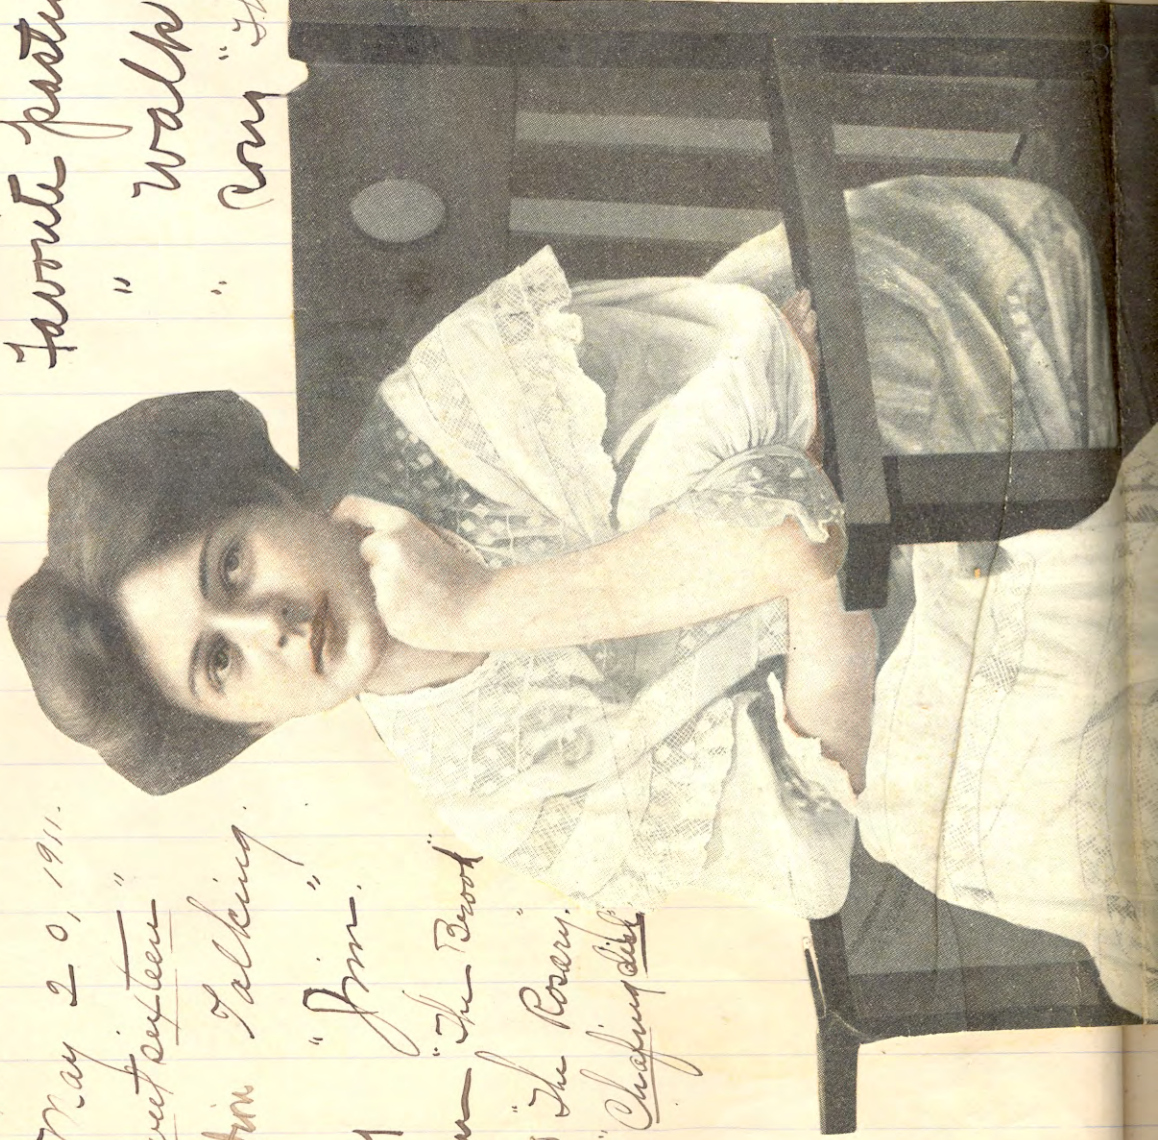 May 20, 1911.
sixteen"
Talking.
"Jim".
"The Brook"
"The Rosary."
"Chafing dish"
Favorite
" Walk
" song "